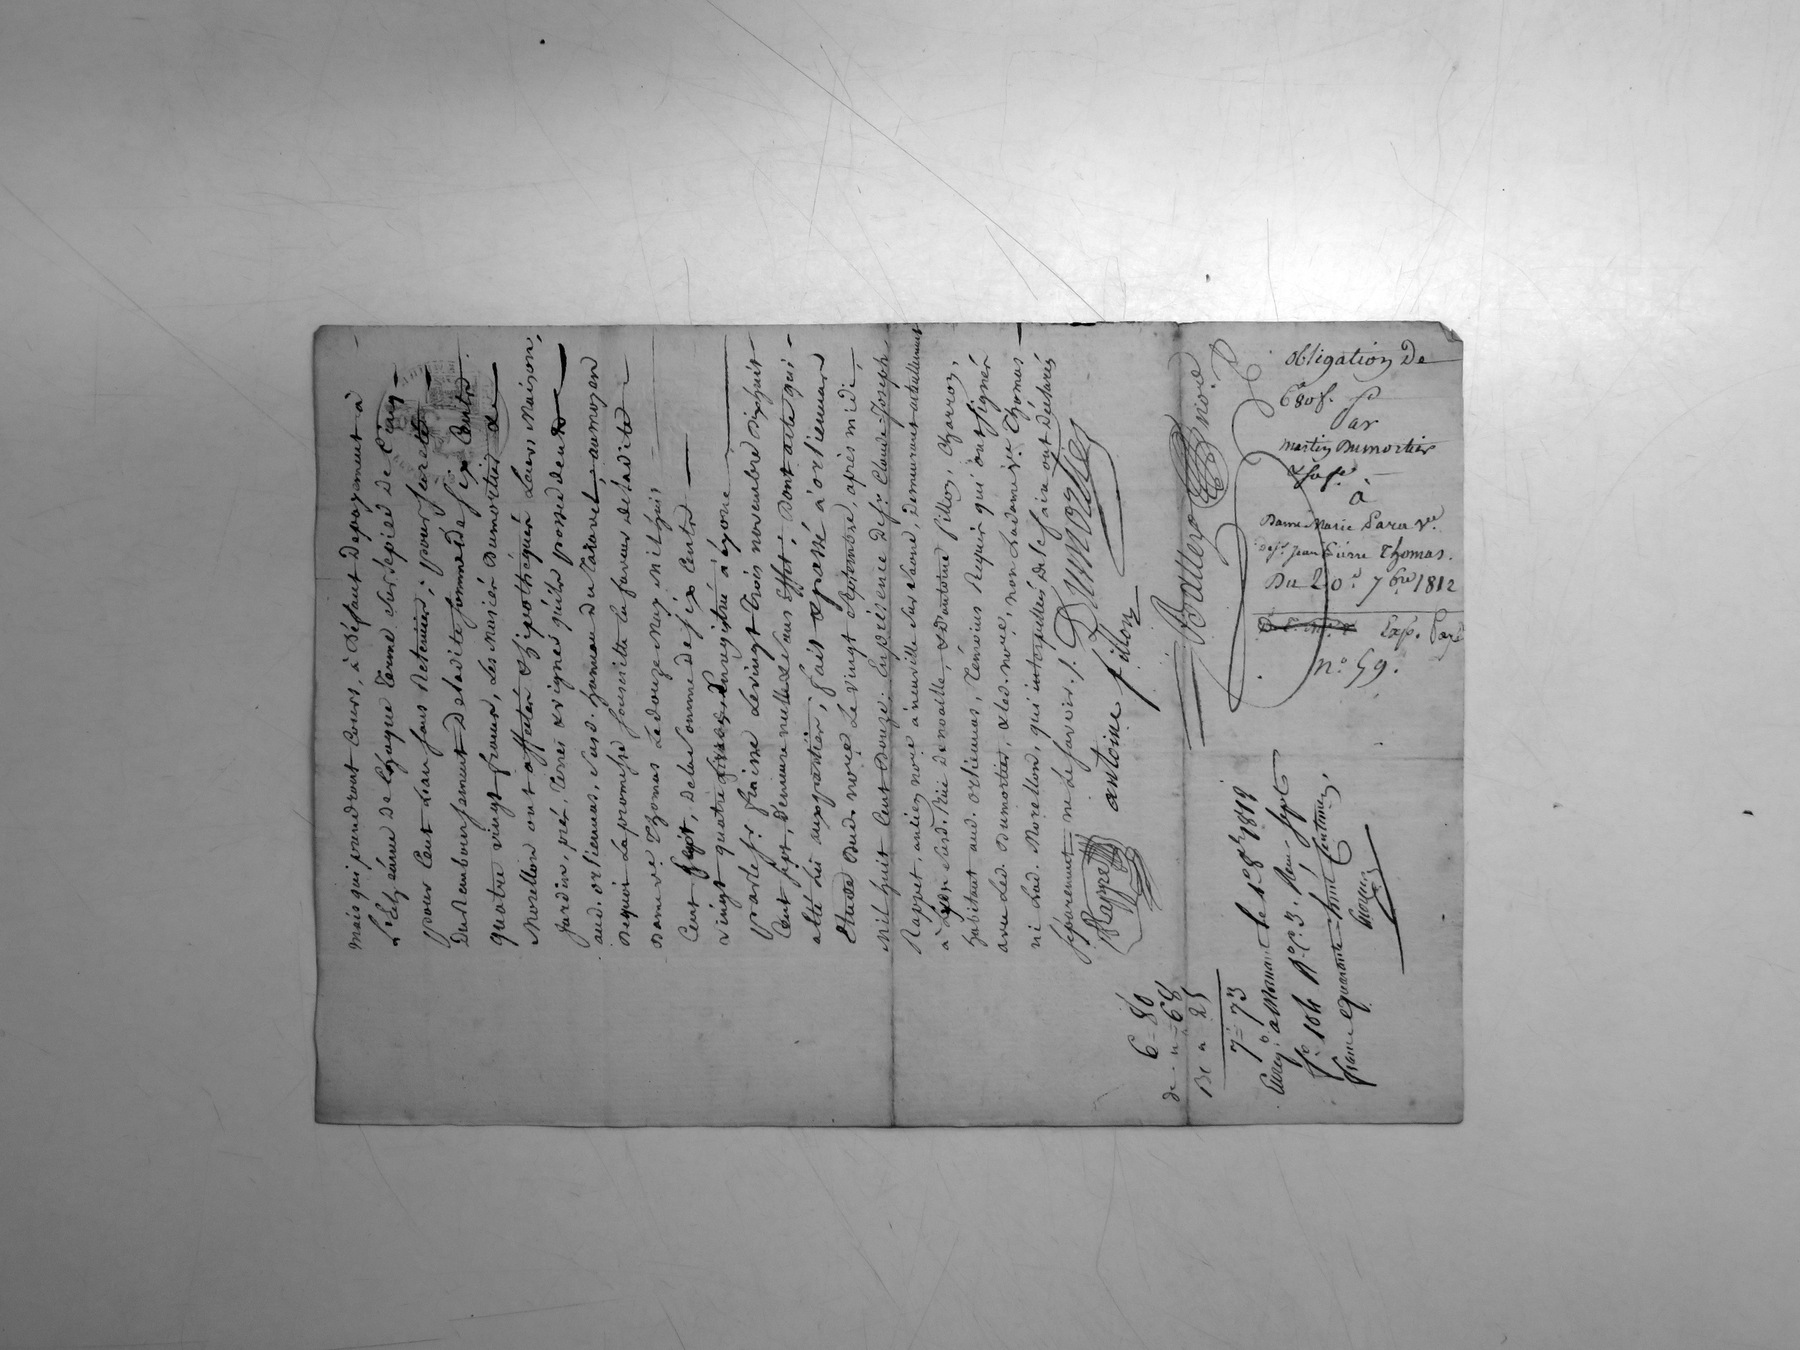 mais qui prendront Cours, à Défaut De payement à
L'Echéance De Chaque Terme Sur Lepied De Cinq
pour Cent Lian sans Retenüe; pour Sureté
Du Remboursement De Ladite Somme de Six Cents
quatre vingt francs, Les Mariés Dumortier &
Morellon ont affecter & hipothéquer Leurs Maison,
Jardin, pré, Terres & vigne qu'ils possedent
aud. orlienas, Sus d. hameau du Tatavet, au moyen
De quoi La promesse Souscritte en faveur de Ladite
Dame ve Thomas Ledouze May Mil huit
Cent Sept, De la Somme de Six Cents
vingt quatre francs, Enregistrée à Lyon
par le Sr fraisse Le vingt Trois novembre Mil huit
Cent Sept, Demeure nulle & Sans Effet; Dont acte qui
atté Lu aux parties, fait & passé à orlienas
Etude Dud. nore Le vingt Septembre, après midi,
Mil huit Cent Douze. En présence De Sr. Claude Joseph
Rappet, ancien nore à neuville Sur Saone, Demeurant actuellement
à Lyon Susd. Rüe Demoville, & D'antoine fillon, Charron,
habitant aud. orlienas, Témoins Requis qui ont Signé
avec Led. Dumortier, & Led. nore, non Ladame ve. Thomas
ni Lad. Morellon, qui interpellées De le faire ont Déclaré
séparément ne Le Savoir./.
Rappet
antoine fillon
Dumortier
Balley nore
6 = 80
de .. " = 68
De " 25
7 = 73
Enreg. à Mornant le 1er 8bre 1812
fo. 104 Ro C. 3. Reçu Sept
francs quarante huit Centimes
obligation De
680 f.
Par
Martin Dumortier
& sa fe.
à
Dame Marie ve.
de Sr. Jean Pierre Thomas.
Du 20e. 7bre 1812
Exp.
no. 59.